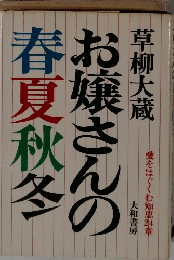 草柳大蔵
お嬢さんの
春夏秋冬
愛をはぐくむ知恵24章
大和書房